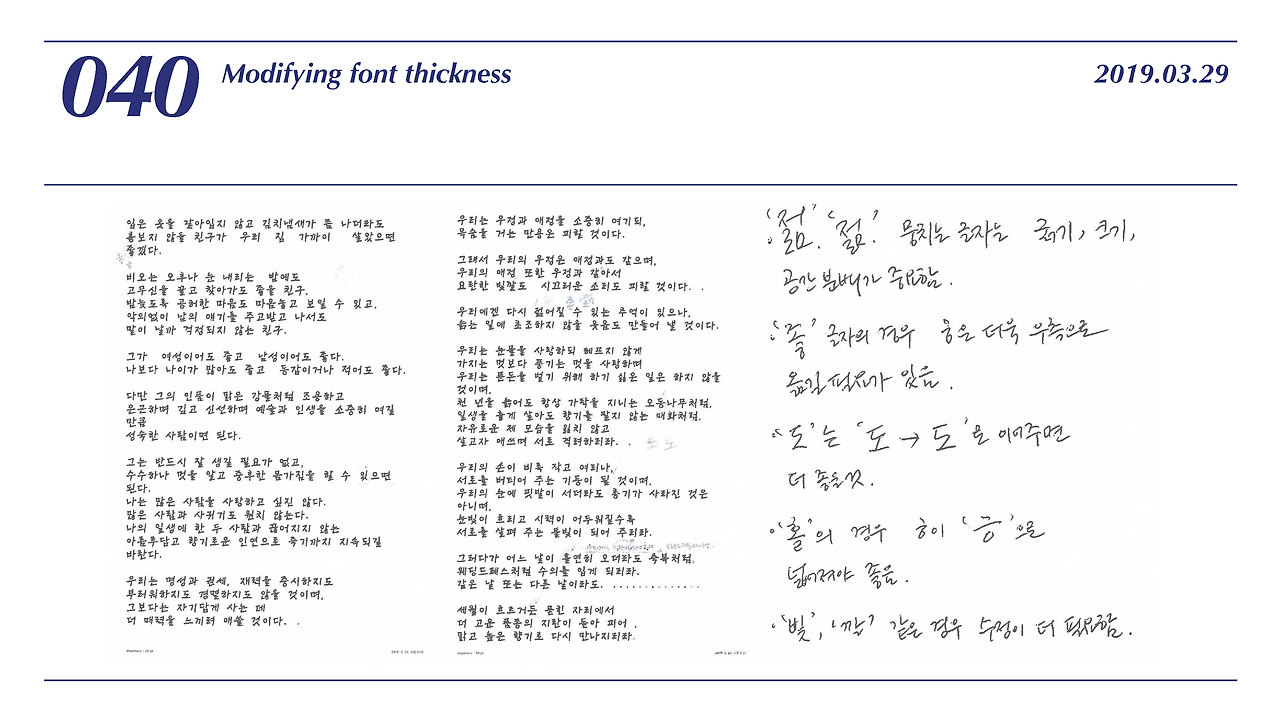 040
Modifying font thickness
2019.03.29
입은 옷을 갈아입지 않고 김치냄새가 좀 나더라도
흉보지 않을 친구가 우리 집 가까이 살았으면
좋겠다.
비오는 오후나 눈 내리는 밤에도
고무신을 끌고 찾아가도 좋을 친구,
밤늦도록 공허한 마음도 마음놓고 보일 수 있고,
악의없이 남의 얘기를 주고받고 나서도
말이 날까 걱정되지 않는 친구.
그가 여성이어도 좋고 남성이어도 좋다.
나보다 나이가 많아도 좋고 동갑이거나 적어도 좋다.
다만 그의 인품이 맑은 강물처럼 조용하고
은근하며 깊고 신선하며 예술과 인생을 소중히 여길
만큼
성숙한 사람이면 된다.
그는 반드시 잘 생길 필요가 없고,
수수하나 멋을 알고 중후한 몸가짐을 할 수 있으면
된다.
나는 많은 사람을 사랑하고 싶진 않다.
많은 사람과 사귀기도 원치 않는다.
나의 일생에 한 두 사람과 끊어지지 않는
아름답고 향기로운 인연으로 죽기까지 지속되길
바란다.
우리는 명성과 권세, 재력을 중시하지도
부러워하지도 경멸하지도 않을 것이며,
그보다는 자기답게 사는 데
더 매력을 느끼려 애쓸 것이다.
우리는 우정과 애정을 소중히 여기되,
목숨을 거는 만용은 피할 것이다.
그래서 우리의 우정은 애정과도 같으며,
우리의 애정 또한 우정과 같아서
요란한 빛깔도 시끄러운 소리도 피할 것이다.
우리에겐 다시 젊어질 수 있는 추억이 있으나,
늙는 일에 초조하지 않을 웃음도 만들어 낼 것이다.
우리는 눈물을 사랑하되 헤프지 않게
가지는 멋보다 풍기는 멋을 사랑하며
우리는 푼돈을 벌기 위해 하기 싫은 일은 하지 않을
것이며,
천 년을 늙어도 항상 가락을 지니는 오동나무처럼,
일생을 춥게 살아도 향기를 팔지 않는 매화처럼.
자유로운 제 모습을 잃지 않고
살고자 애쓰며 서로 격려하리라.
우리의 손이 비록 작고 여리나,
서로를 버티어 주는 기둥이 될 것이며,
우리의 눈에 핏발이 서더라도 총기가 사라진 것은
아니며,
눈빛이 흐리고 시력이 어두워질수록
서로를 살펴 주는 불빛이 되어 주리라.
그러다가 어느 날이 홀연히 오더라도 축복처럼,
웨딩드레스처럼 수의를 입게 되리라.
같은 날 또는 다른 날이라도.
세월이 흐르거든 묻힌 자리에서
더 고운 품종의 지란이 돋아 피어,
맑고 높은 향기로 다시 만나지리라.
'젊', '젊' 뭉치는 글자는 굵기, 크기,
공간 분배가 중요함.
'좋' 글자의 경우 ㅎ은 더욱 우측으로
옮길 필요가 있음.
'도'는 '도 → 도'로 이어주면
더 좋을것.
'홀'의 경우 ㅎ이 '층'으로
넓어져야 좋음.
'빛', '깔' 같은 경우 수정이 더 필요함.